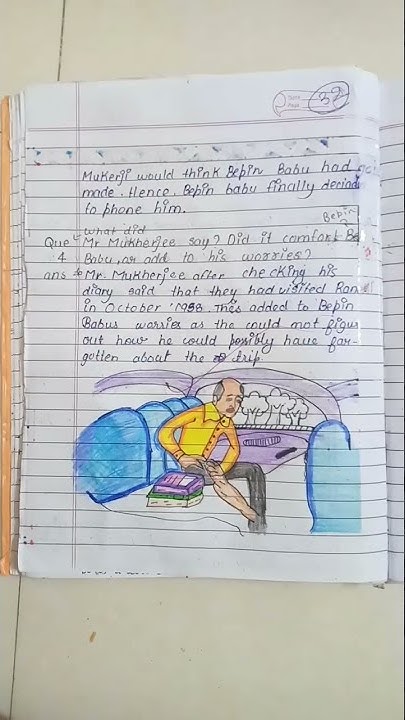 Page 32
Mukerji would think Bepin Babu had
made. Hence. Bepin babu finally decided
to phone him.
Que 4 What did Mr Mukherjee say? Did it comfort Bepin
Babu, or add to his worries?
ans Mr. Mukherjee after checking his
diary said that they had visited Ran
in October '1958. This added to Bepin
Babus worries as the could not figu
out how he could possibly have for-
gotten about the trip.